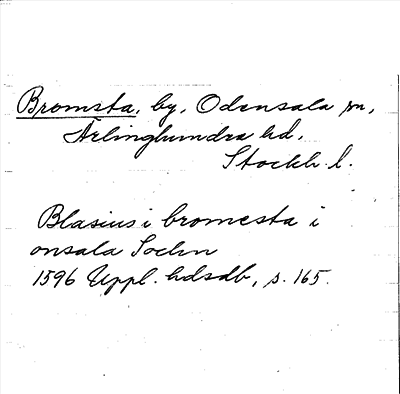 Bromsta, by, Odensala sn,
Ärlinghundra hd.
Stockh. l.
Blasius i bromesta i
onsala Sochn
1596 Uppl. hdsdb, s. 165.